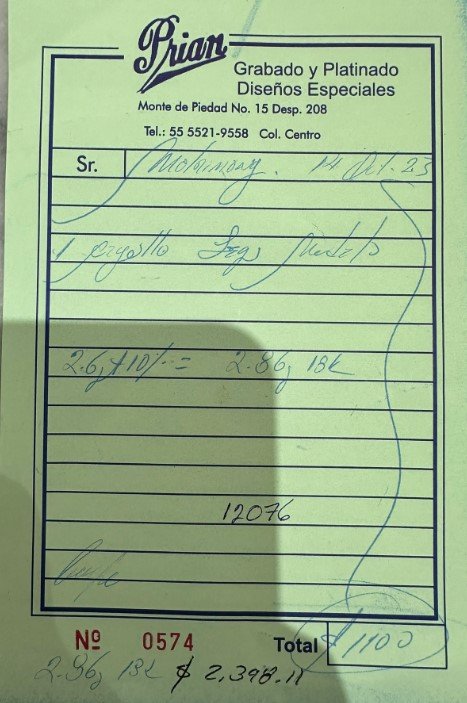 Prian
Grabado y Platinado
Diseños Especiales
Monte de Piedad No. 15 Desp. 208
Tel.: 55 5521-9558 Col. Centro
Sr. 14 Oct. 23
1
2.6g +10%= 2.86g 18k
12076
Nº 0574 Total $1100
18k $ 2,398.11